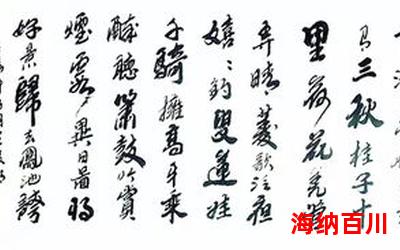 有三秋桂子十
里荷花羌管
弄晴菱歌泛夜
嬉〻釣叟蓮娃
千騎擁高牙乘
醉聽簫鼓吟賞
煙霞異日圖將
好景歸去鳳池誇
海纳百川